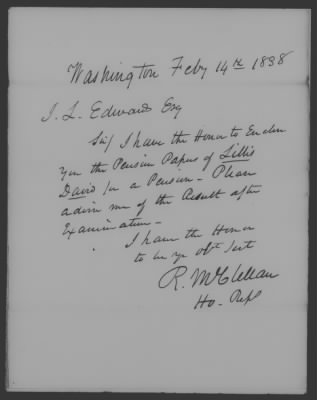 Washington Feby 14th 1838
J. L. Edward Esq
Sir I have the Honor to Enclose
you the Pension Papers of Lillis
David for a Pension - Please
advise me of the Result after
Examination -
I have the Honor
to be yr obt Sert
R. McClellan
Ho - Reps